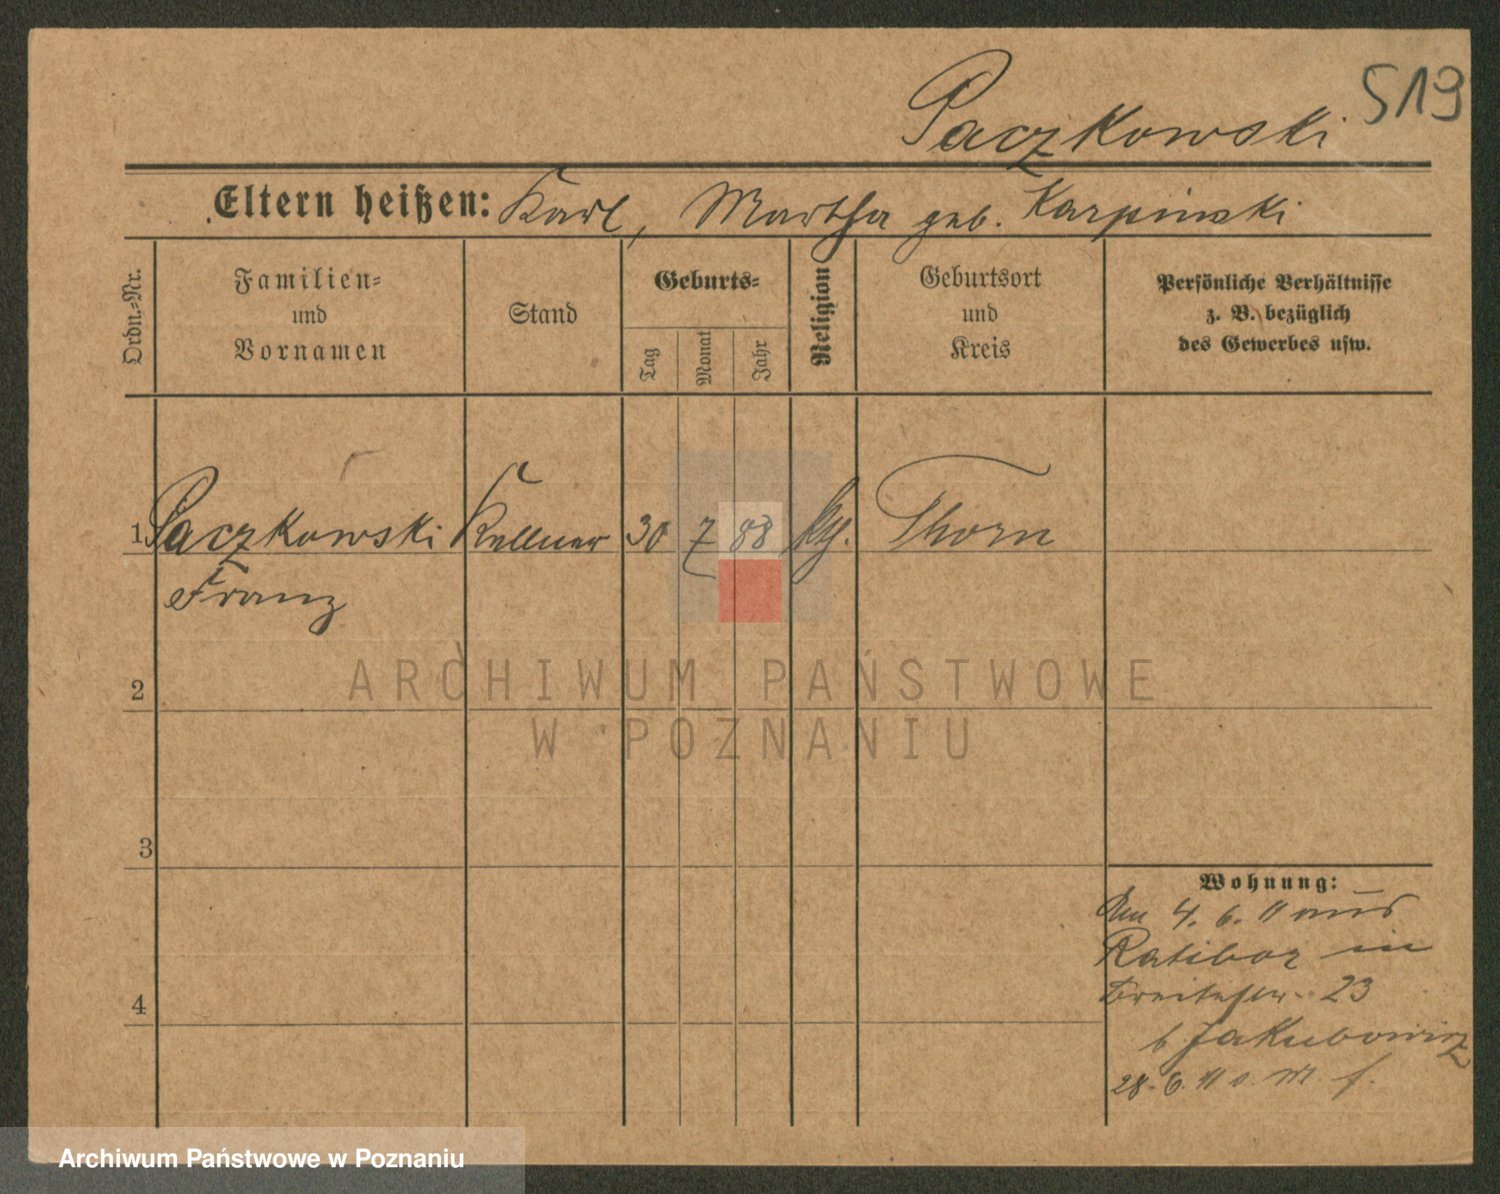 519
Paczkowski
Eltern heißen: Karl, Martha geb. Karpinski
Ordn.-Nr.
Familien-
und
Vornamen
Stand
Geburts-
Tag
Monat
Jahr
Religion
Geburtsort
und
Kreis
Persönliche Verhältnisse
z. B. bezüglich
des Gewerbes usw.
1 Paczkowski Kellner 30 7 88 Thorn
Franz
2
3
4
Wohnung:
4. 6. 11 aus
Ratibor in
Breitestr. 23
b. Jakubowicz
28. 6. 11
ARCHIWUM PAŃSTWOWE
W POZNANIU
Archiwum Państwowe w Poznaniu